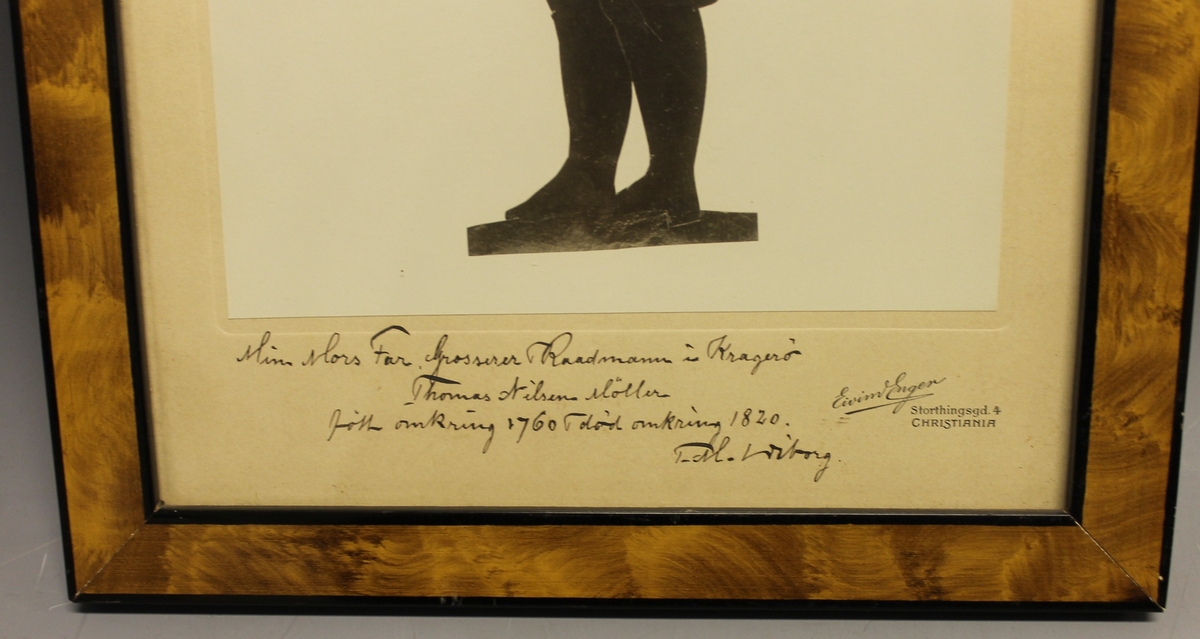 Min Mors Far, Grosserer & Raadmann i Kragerö
Thomas Nilsen Möller
født omkring 1760 & död omkring 1820.
T. M. Wiborg.
Eivind Engen
Storthingsgd. 4
CHRISTIANIA